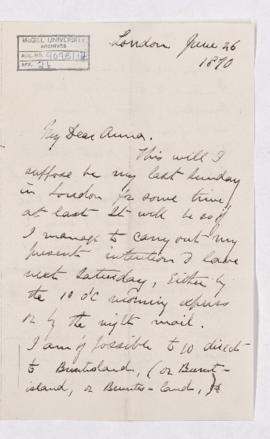 McGILL UNIVERSITY
ARCHIVES
ACC. NO.
REF.
London June 26
1890
My Dear Anna.
This will I
suppose be my last Sunday
in London for some time,
at last It will be so if
I manage to carry out my
present intention to leave
next Saturday, Either by
the 10 o'C morning express
or by the night mail.
I am if possible to go direct
to Burntisland, (or Burnt-
island, or Burnts-land,